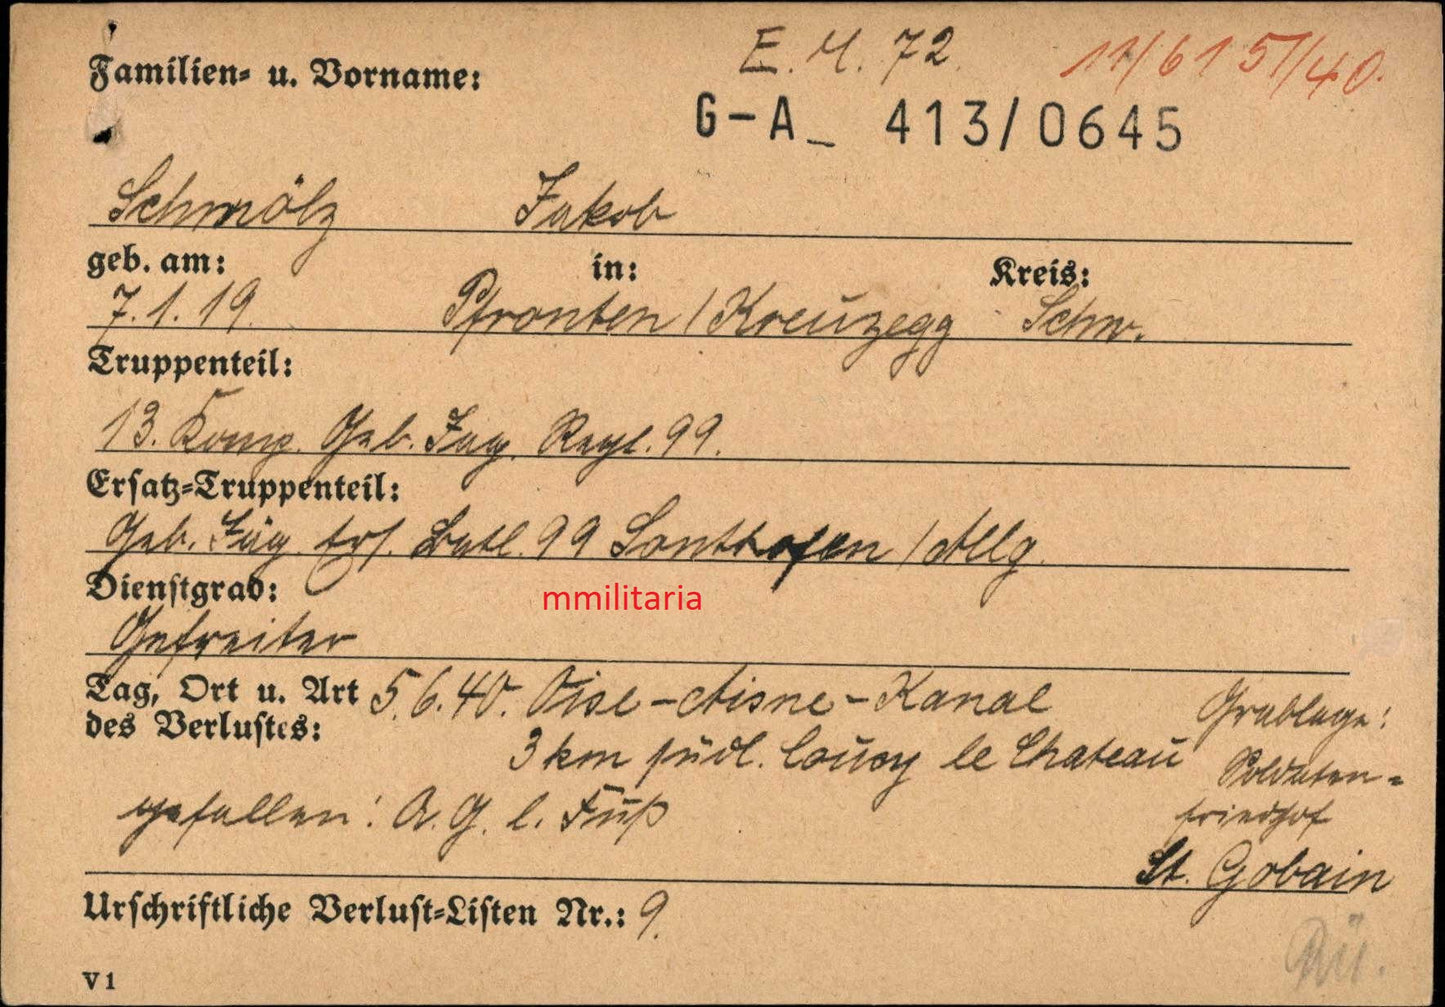 E. M. 72.
11/6157/40.
Familien- u. Vorname:
G-A_ 413/0645
Schmölz Jakob
geb. am: in: Kreis:
7.1.19. Pfronten / Kreuzegg Schw.
Truppenteil:
13. Komp. Geb. Jäg. Regt. 99.
Ersatz-Truppenteil:
Geb. Jäg. Ers. Batl. 99 Sonthofen / Allg.
Dienstgrad:
mmilitaria
Gefreiter
Tag, Ort u. Art 5.6.40. Oise-Aisne-Kanal
des Verlustes: 3 km südl. Coucy le Chateau
Grablage:
Soldaten=
friedhof
St. Gobain
gefallen: A. G. l. Fuß
Urschriftliche Verlust-Listen Nr.: 9.
V 1